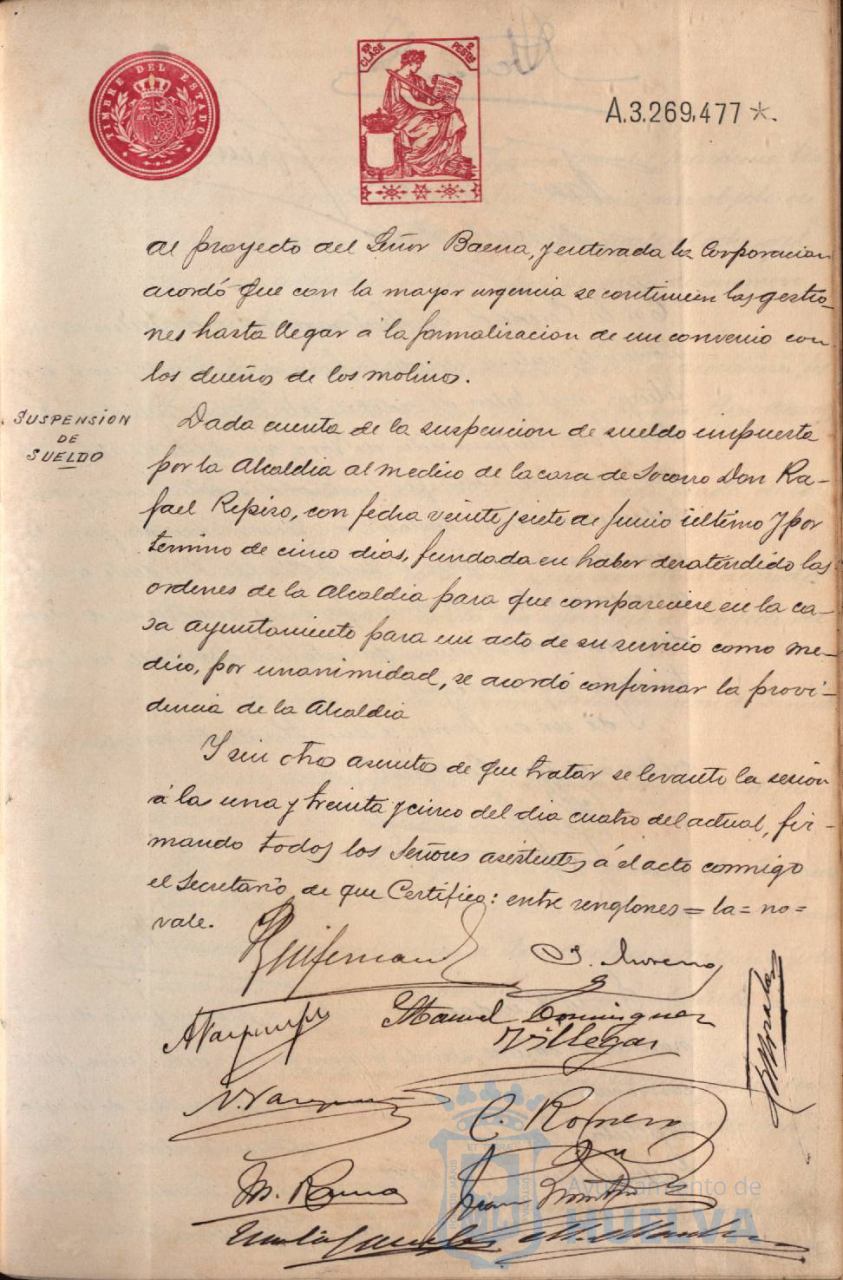 TIMBRE DEL ESTADO
CLASE
2 PESETAS
A.3.269,477 *.
al proyecto del Señor Baena, y enterada la Corporacion
acordó que con la mayor urgencia se continuen las gestio-
nes hasta llegar á la formalisacion de un convenio con
los dueños de los molinos.
SUSPENSIÓN
DE
SUELDO
Dada cuenta de la suspencion de sueldo impuesta
por la Alcaldia al medico de la casa de Socorro Don Ra-
fael Repiso, con fecha veinte y siete de Junio último y por
termino de cinco dias, fundada en haber desatendido las
ordenes de la Alcaldia para que compareciese en la ca-
sa ayuntamiento para un acto de su servicio como me-
dico, por unanimidad, se acordó confirmar la provi-
dencia de la Alcaldia
Y sin otros asuntos de que tratar se levanto la sesión
á las una y treinta y cinco del dia cuatro del actual, fir-
mando todos los Señores asistentes á el acto conmigo
el Secretario, de que Certifico: entre renglones = la = no =
vale.
J. Moreno
Manuel Dominguez
Villegas
Morales
C. Romero
Ayuntamiento de
HUELVA